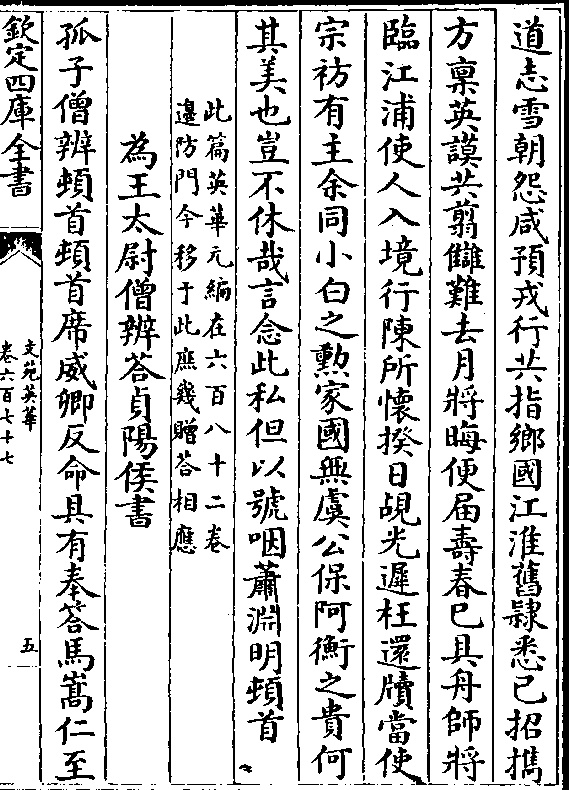 道志雪朝怨咸預戎行共指鄉國江淮舊隷悉已招擕
方禀英謨共翦讎難去月將晦便届壽春已具舟師將
臨江浦使人入境行陳所懷揆日覘光遲枉還牘當使
宗祊有主余同小白之勲家國無虞公保阿衡之貴何
其美也豈不休哉言念此私但以號咽蕭淵明頓首
此篇英華元編在六百八十二卷
邉防門今移于此庶幾贈答相應
為王太尉僧辨答貞陽侯書
孤子僧辨頓首頓首席威卿反命具有奉答馬嵩仁至
欽定四庫全書
文苑英華
卷六百七十七
五